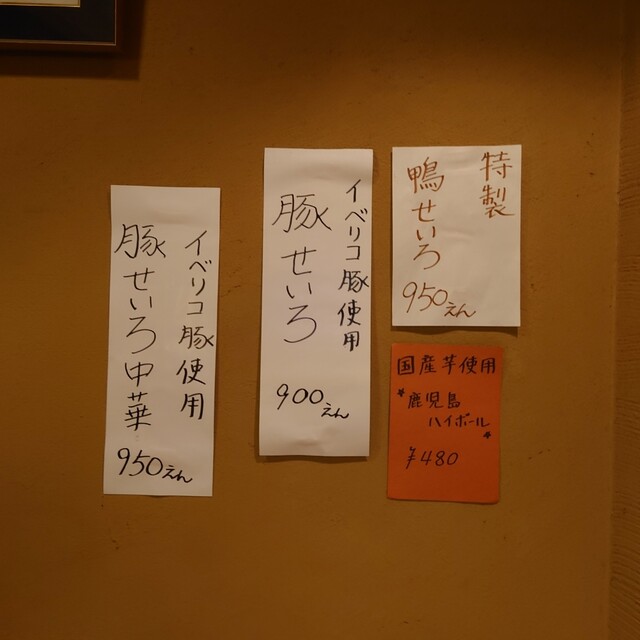 特製
鴨せいろ
950えん
イベリコ豚使用
豚せいろ
900えん
イベリコ豚使用
豚せいろ中華
950えん
国産芋使用
"鹿児島
ハイボール"
¥480